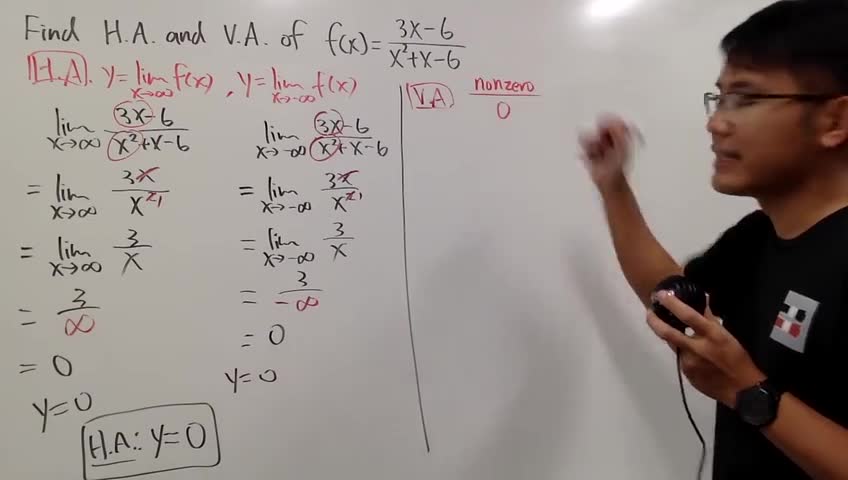 Find H.A. and V.A. of f(x) = (3x-6)/(x²+x-6)
H.A. y = lim x→∞ f(x), y = lim x→-∞ f(x)
lim x→∞ (3x-6)/(x²+x-6)
= lim x→∞ 3x/x²
= lim x→∞ 3/x
= 3/∞
= 0
y=0
H.A.: y=0
lim x→-∞ (3x-6)/(x²+x-6)
= lim x→-∞ 3x/x²
= lim x→-∞ 3/x
= 3/-∞
= 0
y=0
V.A. nonzero/0